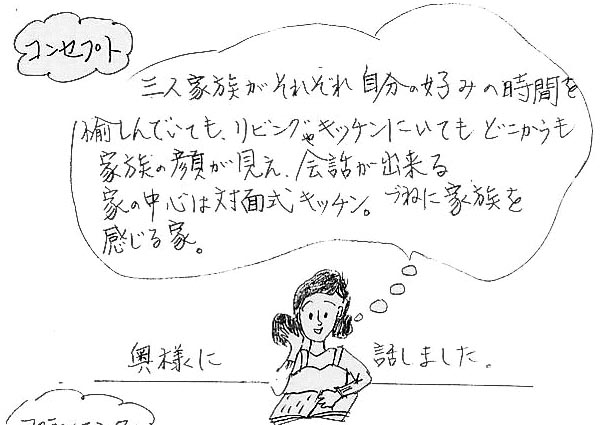 コンセプト
三人家族がそれぞれ自分の好みの時間を
愉しんでいても、リビングやキッチンにいてもどこからも
家族の顔が見え、会話が出来る
家の中心は対面式キッチン。づねに家族を
感じる家。
奥様に 話しました。